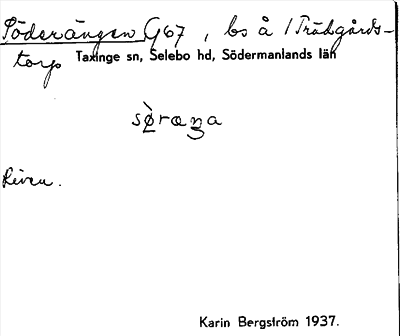 Söderängen G67, bs å 1 Trädgårds-
torp Taxinge sn, Selebo hd, Södermanlands län
Riven.
Karin Bergström 1937.